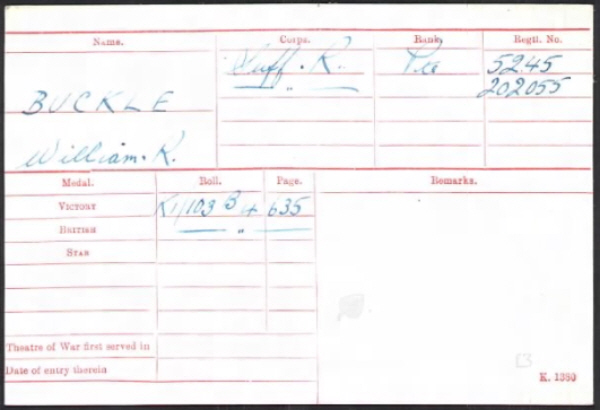 Name. Corps. Rank. Regtl. No.
Suff. R. Pte 5245
" 202055
BUCKLE
William. R.
Medal. Roll. Page. Remarks.
VICTORY K1/103 B4 635
BRITISH "
STAR
Theatre of War first served in
Date of entry therein
K. 1380